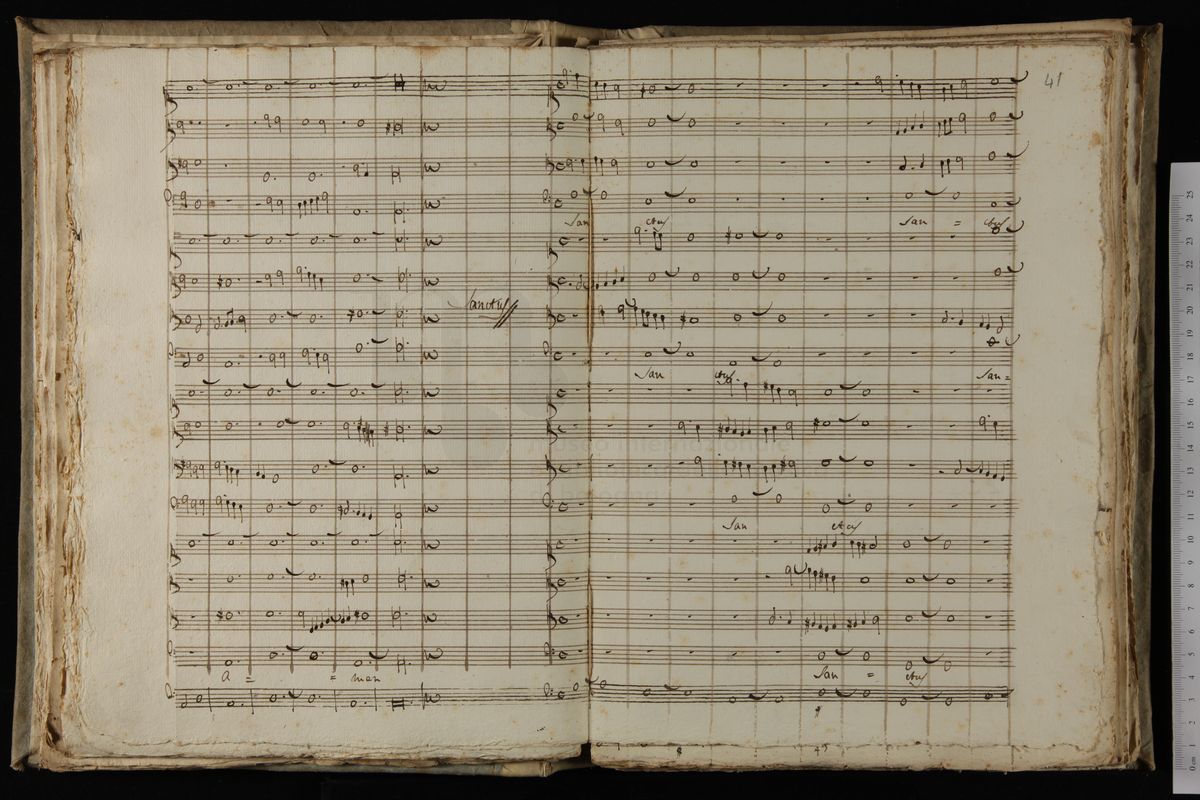 41
San ctus San = ctus
Sanctus
San ctus San =
San ctus
A = = men San = ctus
museo internazionale
0 cm 1 2 3 4 5 6 7 8 9 10 11 12 13 14 15 16 17 18 19 20 21 22 23 24 25